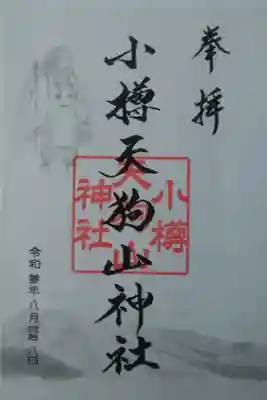 奉拝
小樽天狗山神社
小樽
天狗山
神社
令和参年八月弐拾八日